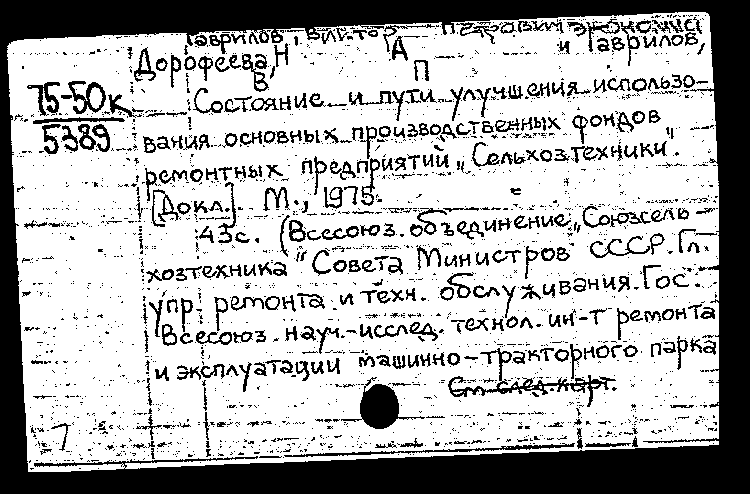 Гаврилов, Виктор Петрович экономика
Дорофеева, Н А и Гаврилов,
В П
75-50к
5389
Состояние и пути улучшения использо-
вания основных производственных фондов
ремонтных предприятий „Сельхозтехники".
[Докл]. М., 1975.
43с. (Всесоюз. объединение „Союзсель-
хозтехника" Совета Министров СССР. Гл.
упр. ремонта и техн. обслуживания. Гос.
Всесоюз. науч.-исслед. технол. ин-т ремонта
и эксплуатации машинно-тракторного парка
См. след. карт.
1